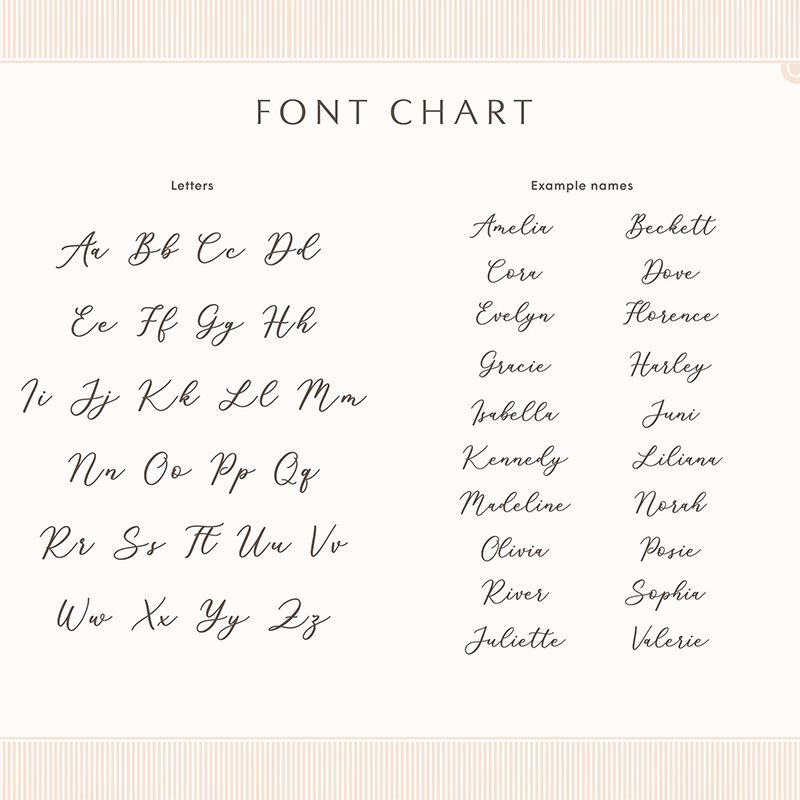 FONT CHART
Letters
Aa Bb Cc Dd
Ee Ff Gg Hh
Ii Jj Kk Ll Mm
Nn Oo Pp Qq
Rr Ss Tt Uu Vv
Ww Xx Yy Zz
Example names
Amelia Beckett
Cora Dove
Evelyn Florence
Gracie Harley
Isabella Juni
Kennedy Liliana
Madeline Norah
Olivia Posie
River Sophia
Juliette Valerie